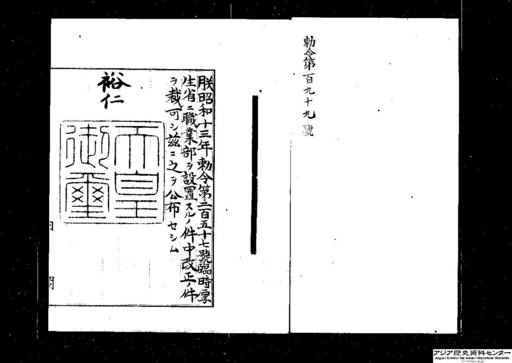 勅令第百九十九號
朕昭和十三年勅令第二百五十七號臨時厚
生省ニ職業部ヲ設置スルノ件中改正ノ件
ヲ裁可シ茲ニ之ヲ公布セシム
裕仁
天皇
御璽
アジア歴史資料センター
Japan Center for Asian Historical Records